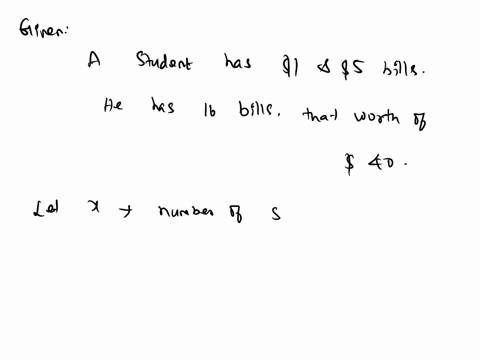 Given:
A student has $1 & $5 bills.
He has 16 bills, that worth of
$ 40.
Let x → number of s